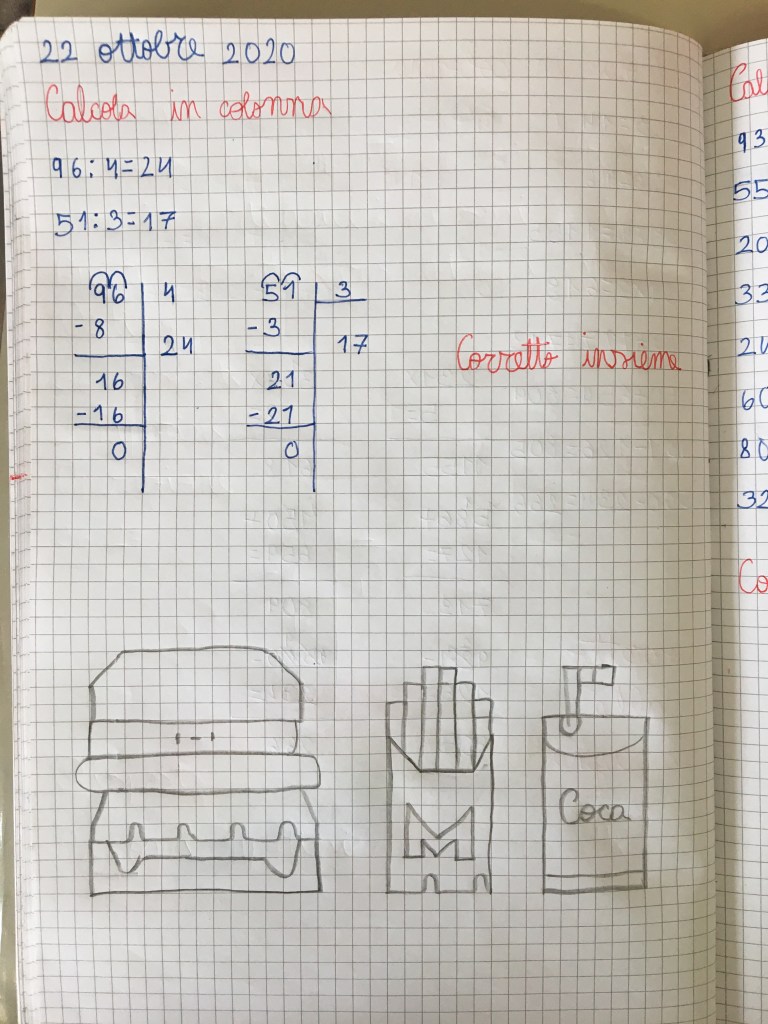 22 ottobre 2020
Calcola in colonna
96:4=24
51:3=17
96 4
-8
24
16
-16
0
51 3
-3
17
21
-21
0
Corretto insieme
M
Coca
Cal
93
55
20
33
24
60
80
32
Co